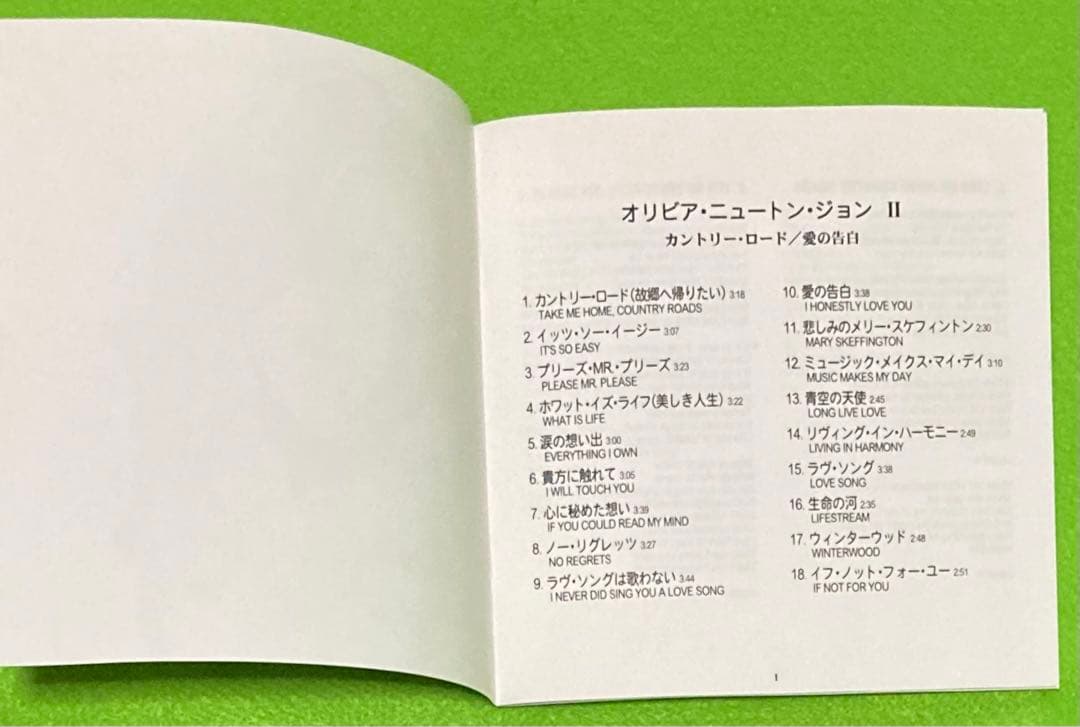 オリビア・ニュートン・ジョン II
カントリー・ロード／愛の告白
1. カントリー・ロード(故郷へ帰りたい) 3:18
TAKE ME HOME, COUNTRY ROADS
2. イッツ・ソー・イージー 3:07
IT'S SO EASY
3. プリーズ・MR.・プリーズ 3:23
PLEASE MR. PLEASE
4. ホワット・イズ・ライフ(美しき人生) 3:22
WHAT IS LIFE
5. 涙の想い出 3:00
EVERYTHING I OWN
6. 貴方に触れて 3:05
I WILL TOUCH YOU
7. 心に秘めた想い 3:39
IF YOU COULD READ MY MIND
8. ノー・リグレッツ 3:27
NO REGRETS
9. ラヴ・ソングは歌わない 3:44
I NEVER DID SING YOU A LOVE SONG
10. 愛の告白 3:38
I HONESTLY LOVE YOU
11. 悲しみのメリー・スケフィントン 2:30
MARY SKEFFINGTON
12. ミュージック・メイクス・マイ・デイ 3:10
MUSIC MAKES MY DAY
13. 青空の天使 2:45
LONG LIVE LOVE
14. リヴィング・イン・ハーモニー 2:49
LIVING IN HARMONY
15. ラヴ・ソング 3:38
LOVE SONG
16. 生命の河 2:35
LIFESTREAM
17. ウィンターウッド 2:48
WINTERWOOD
18. イフ・ノット・フォー・ユー 2:51
IF NOT FOR YOU
1